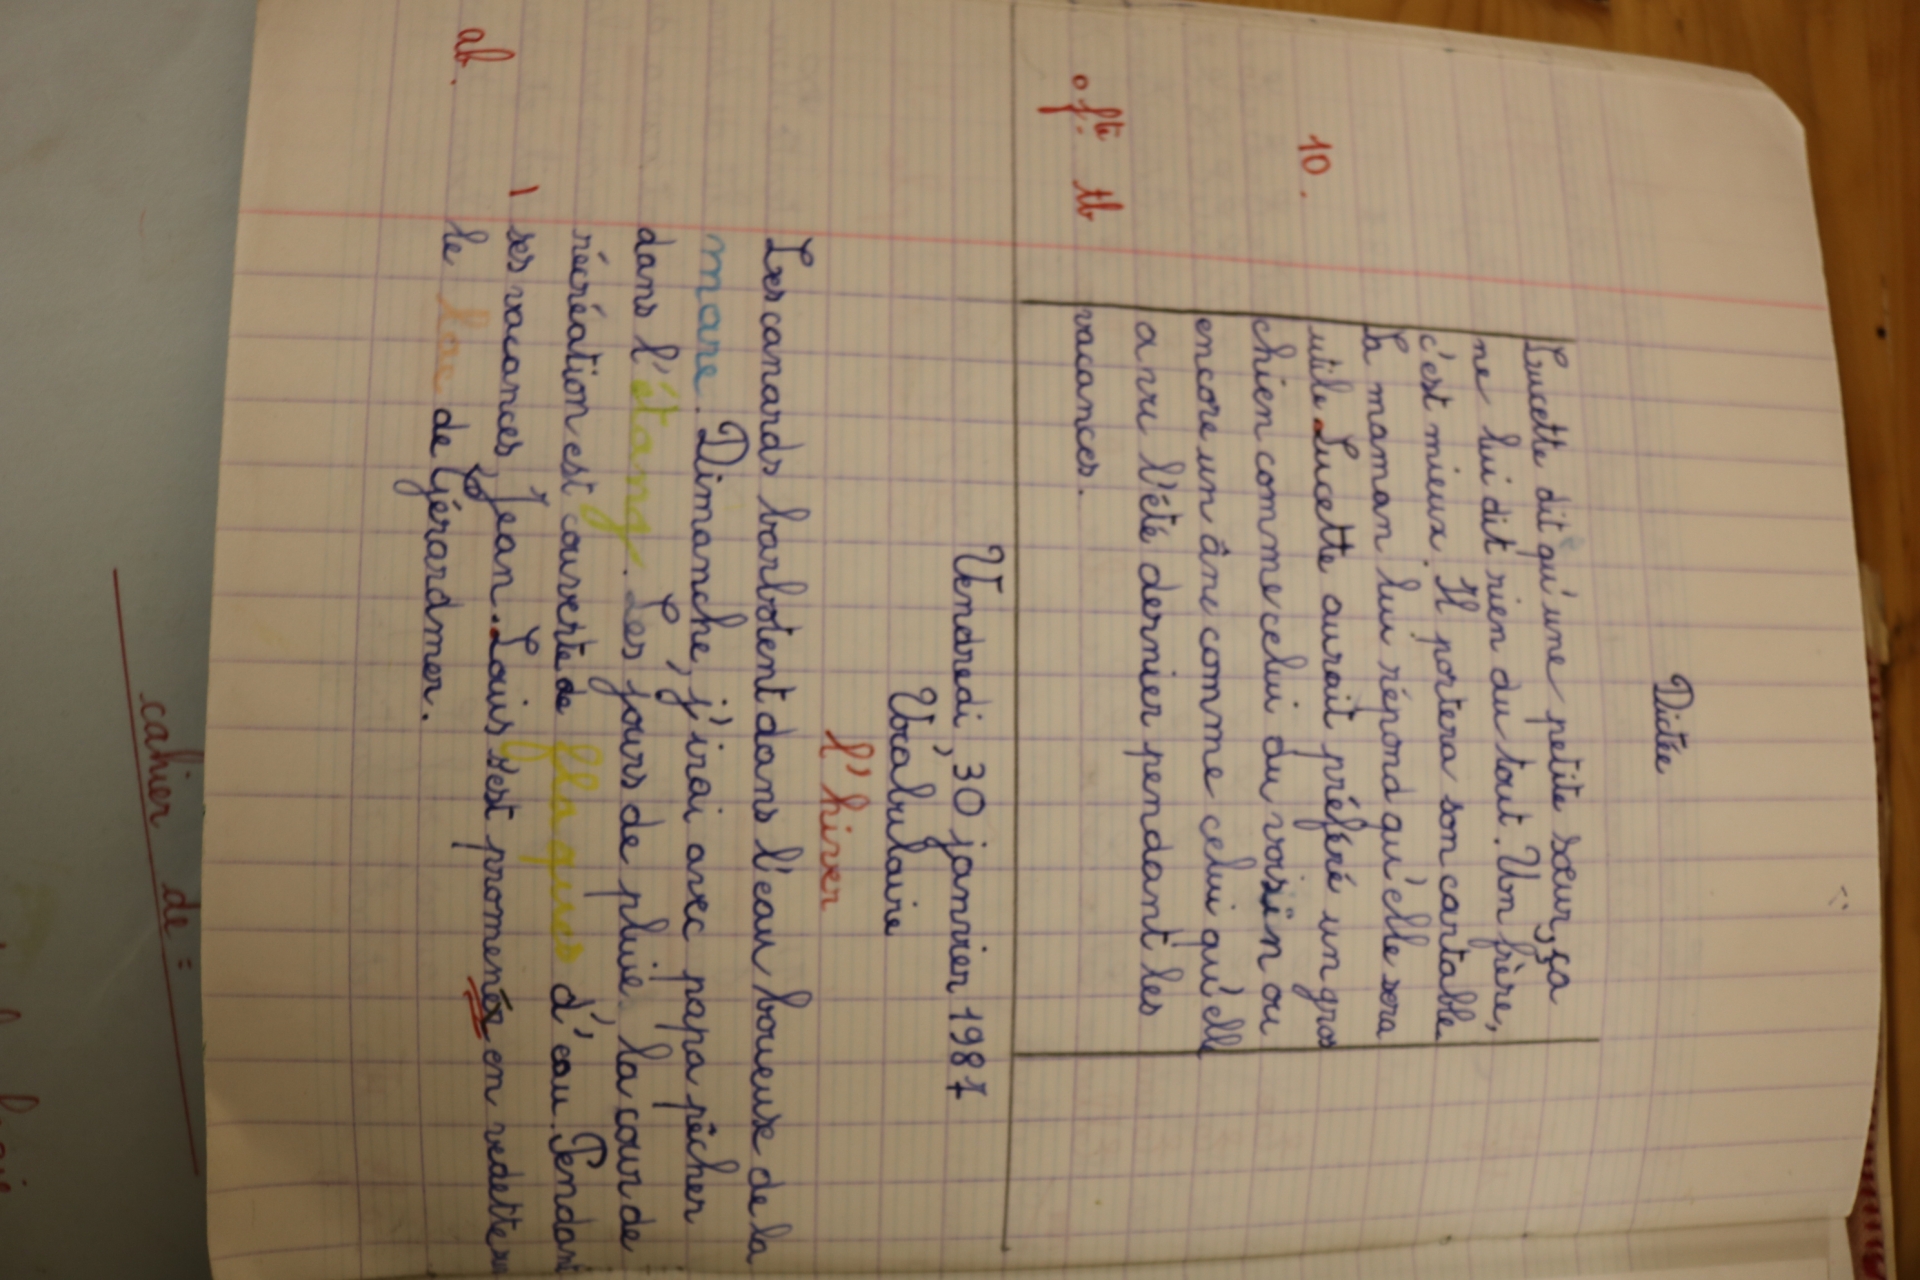 Dictée
Lucette dit qu'une petite sœur, ça
ne lui dit rien du tout. Un frère,
c'est mieux. Il portera son cartable.
La maman lui répond qu'elle sera
utile. Lucette aurait préféré un gros
10.
chien comme celui du voisin ou
encore un âne comme celui qu'elle
a vu l'été dernier pendant les
o fte tb
vacances.
Vendredi, 30 janvier 1987
Vocabulaire
l'hiver
Les canards barbotent dans l'eau boueuse de la
mare. Dimanche, j'irai avec papa pêcher
dans l'étang. Les jours de pluie la cour de
récréation est couverte de flaques d'eau. Pendant
1
ses vacances, Jean-Louis s'est promenée en vedette sur
ab.
le lac de Gérardmer.
cahier de :